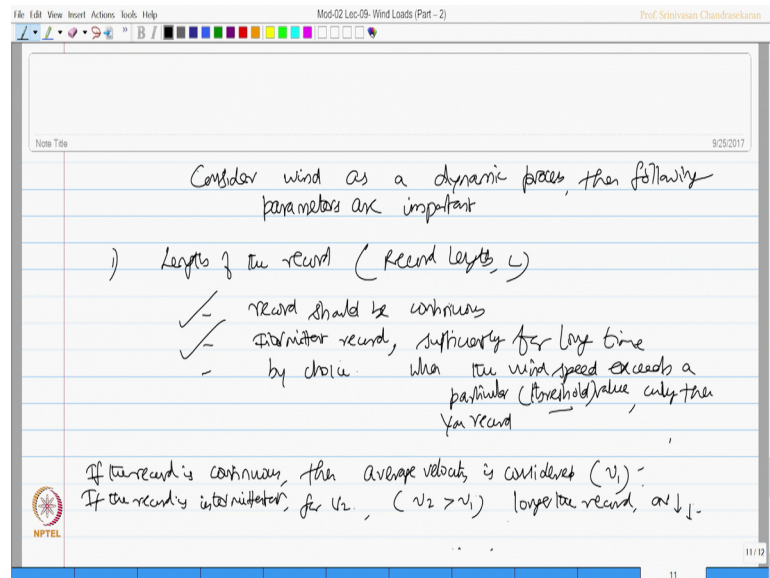 File Edit View Insert Actions Tools Help
Mod-02 Lec-09- Wind Loads (Part – 2)
Prof. Srinivasan Chandrasekaran
B I
Note Title
9/25/2017
Consider wind as a dynamic process, then following
parameters are important
1) Length of the record (Record length, L)
- record should be continuous
- Intermitter record, sufficiently for long time
- by choice. when the wind speed exceeds a
particular (threshold) value, only then
you record
If the record is continuous, then average velocity is considered (v1) -
If the record is intermittent, for v2, (v2 > v1) longer the record, av ↓↓-
NPTEL
11/12
11